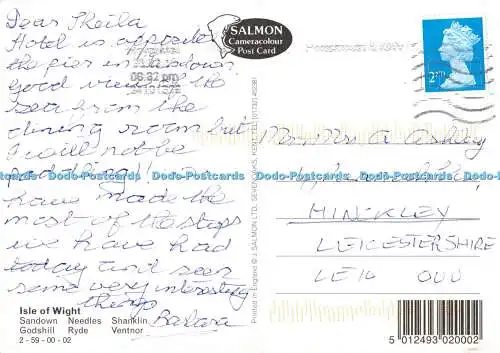 Dear Sheila
Hotel is opposite
the pier in Sandown
good view of the
sea from the
dining room but
I will not be
paddling! I
have made the
most of the stops
we have had
today and seen
some very interesting
things
Barbara
Isle of Wight
Sandown Needles Shanklin
Godshill Ryde Ventnor
2 - 59 - 00 - 02
SALMON
Cameracolour
Post Card
06:32 pm
Printed in England © J. SALMON LTD. SEVENOAKS, KENT
2ND
Mr Mrs A Ashby
HINCKLEY
LEICESTERSHIRE
LE10 0UU
5 012493 020002
Dodo-Postcards Dodo-Postcards Dodo-Postcards Dodo-Postcards